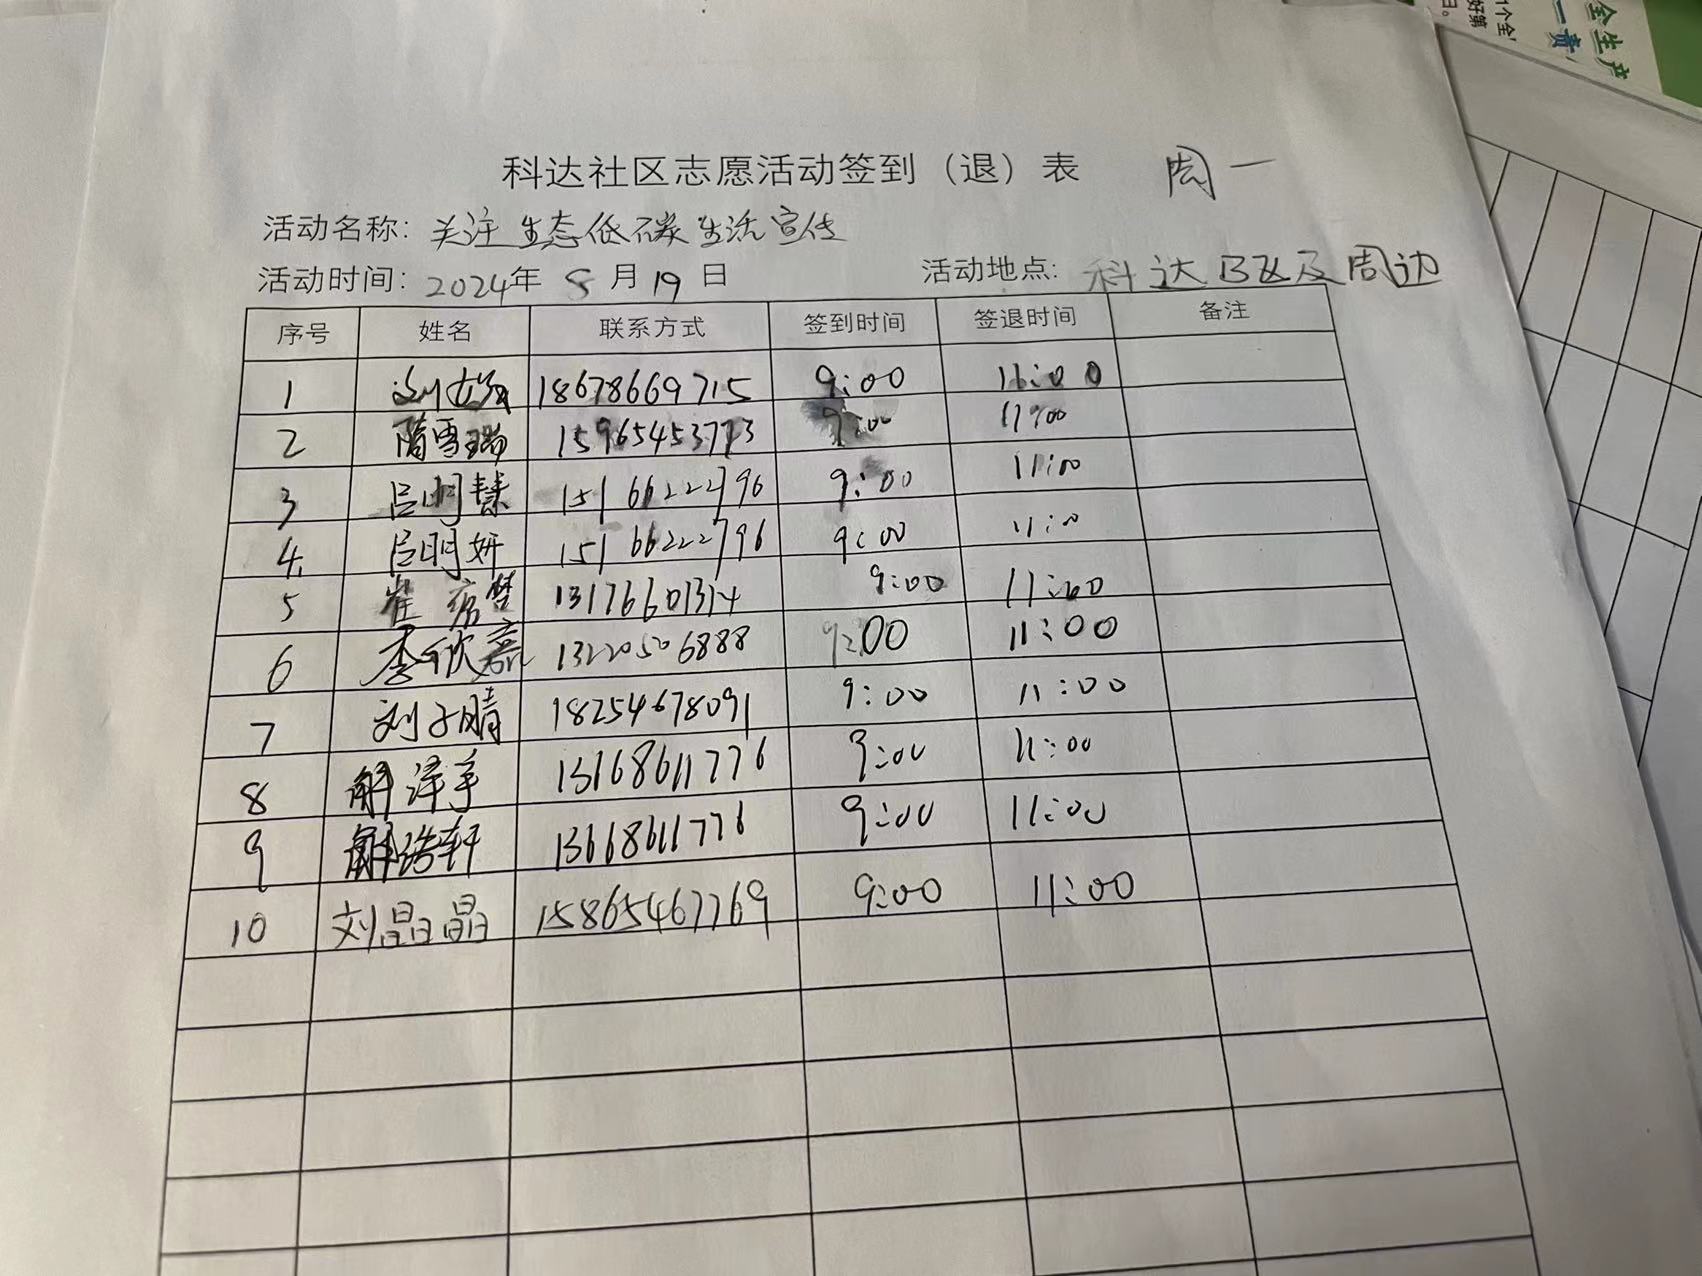 全生产
一责
1个全
好第
日。
科达社区志愿活动签到（退）表 周一
活动名称：关注生态低碳生活宣传
活动时间：2024年 8月19日 活动地点：科达B区及周边
序号 姓名 联系方式 签到时间 签退时间 备注
1 18678669715 9:00 11:00
2 隋雪瑞 15965453773 9:00 11:00
3 吕明臻 15166222796 9:00 11:00
4 吕明妍 15166222796 9:00 11:00
5 崔 梦 13176601314 9:00 11:00
6 李欣嘉 13220506888 9:00 11:00
7 刘子晴 18254678091 9:00 11:00
8 解泽宇 13168611776 9:00 11:00
9 解浩轩 13668611776 9:00 11:00
10 刘晶晶 15865467769 9:00 11:00